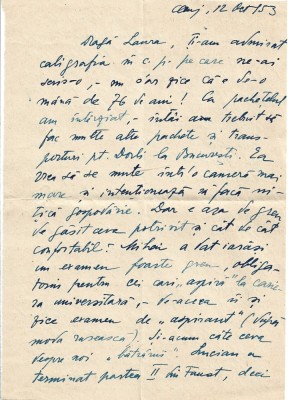 Cluj, 12 Oct 53
Dragă Laura, Ți-am admirat
caligrafia în c.p. pe care ne-ai
scris-o, - nu s'ar zice că e de-o
mână de 76 de ani! Cu pachetelul
am întârziat, - întâi am trebuit să
fac multe alte pachete și trans-
porturi pt. Dorli la București. Ea
vrea să se mute într'o cameră mai
mare și intenționează să facă mi-
tică gospodărie. Dar e așa de greu
de găsit ceva potrivit și cât de cât
confortabil! Mihai a dat iarăși
un examen foarte greu, obliga-
toriu pentru cei cari „aspiră" la carie-
ra universitară, - de-aceea îi și
zice examen de „aspirant" (după
moda rusească). Și-acum câte ceva
despre noi „bătrânii". Lucian a
terminat partea II din Faust, deci